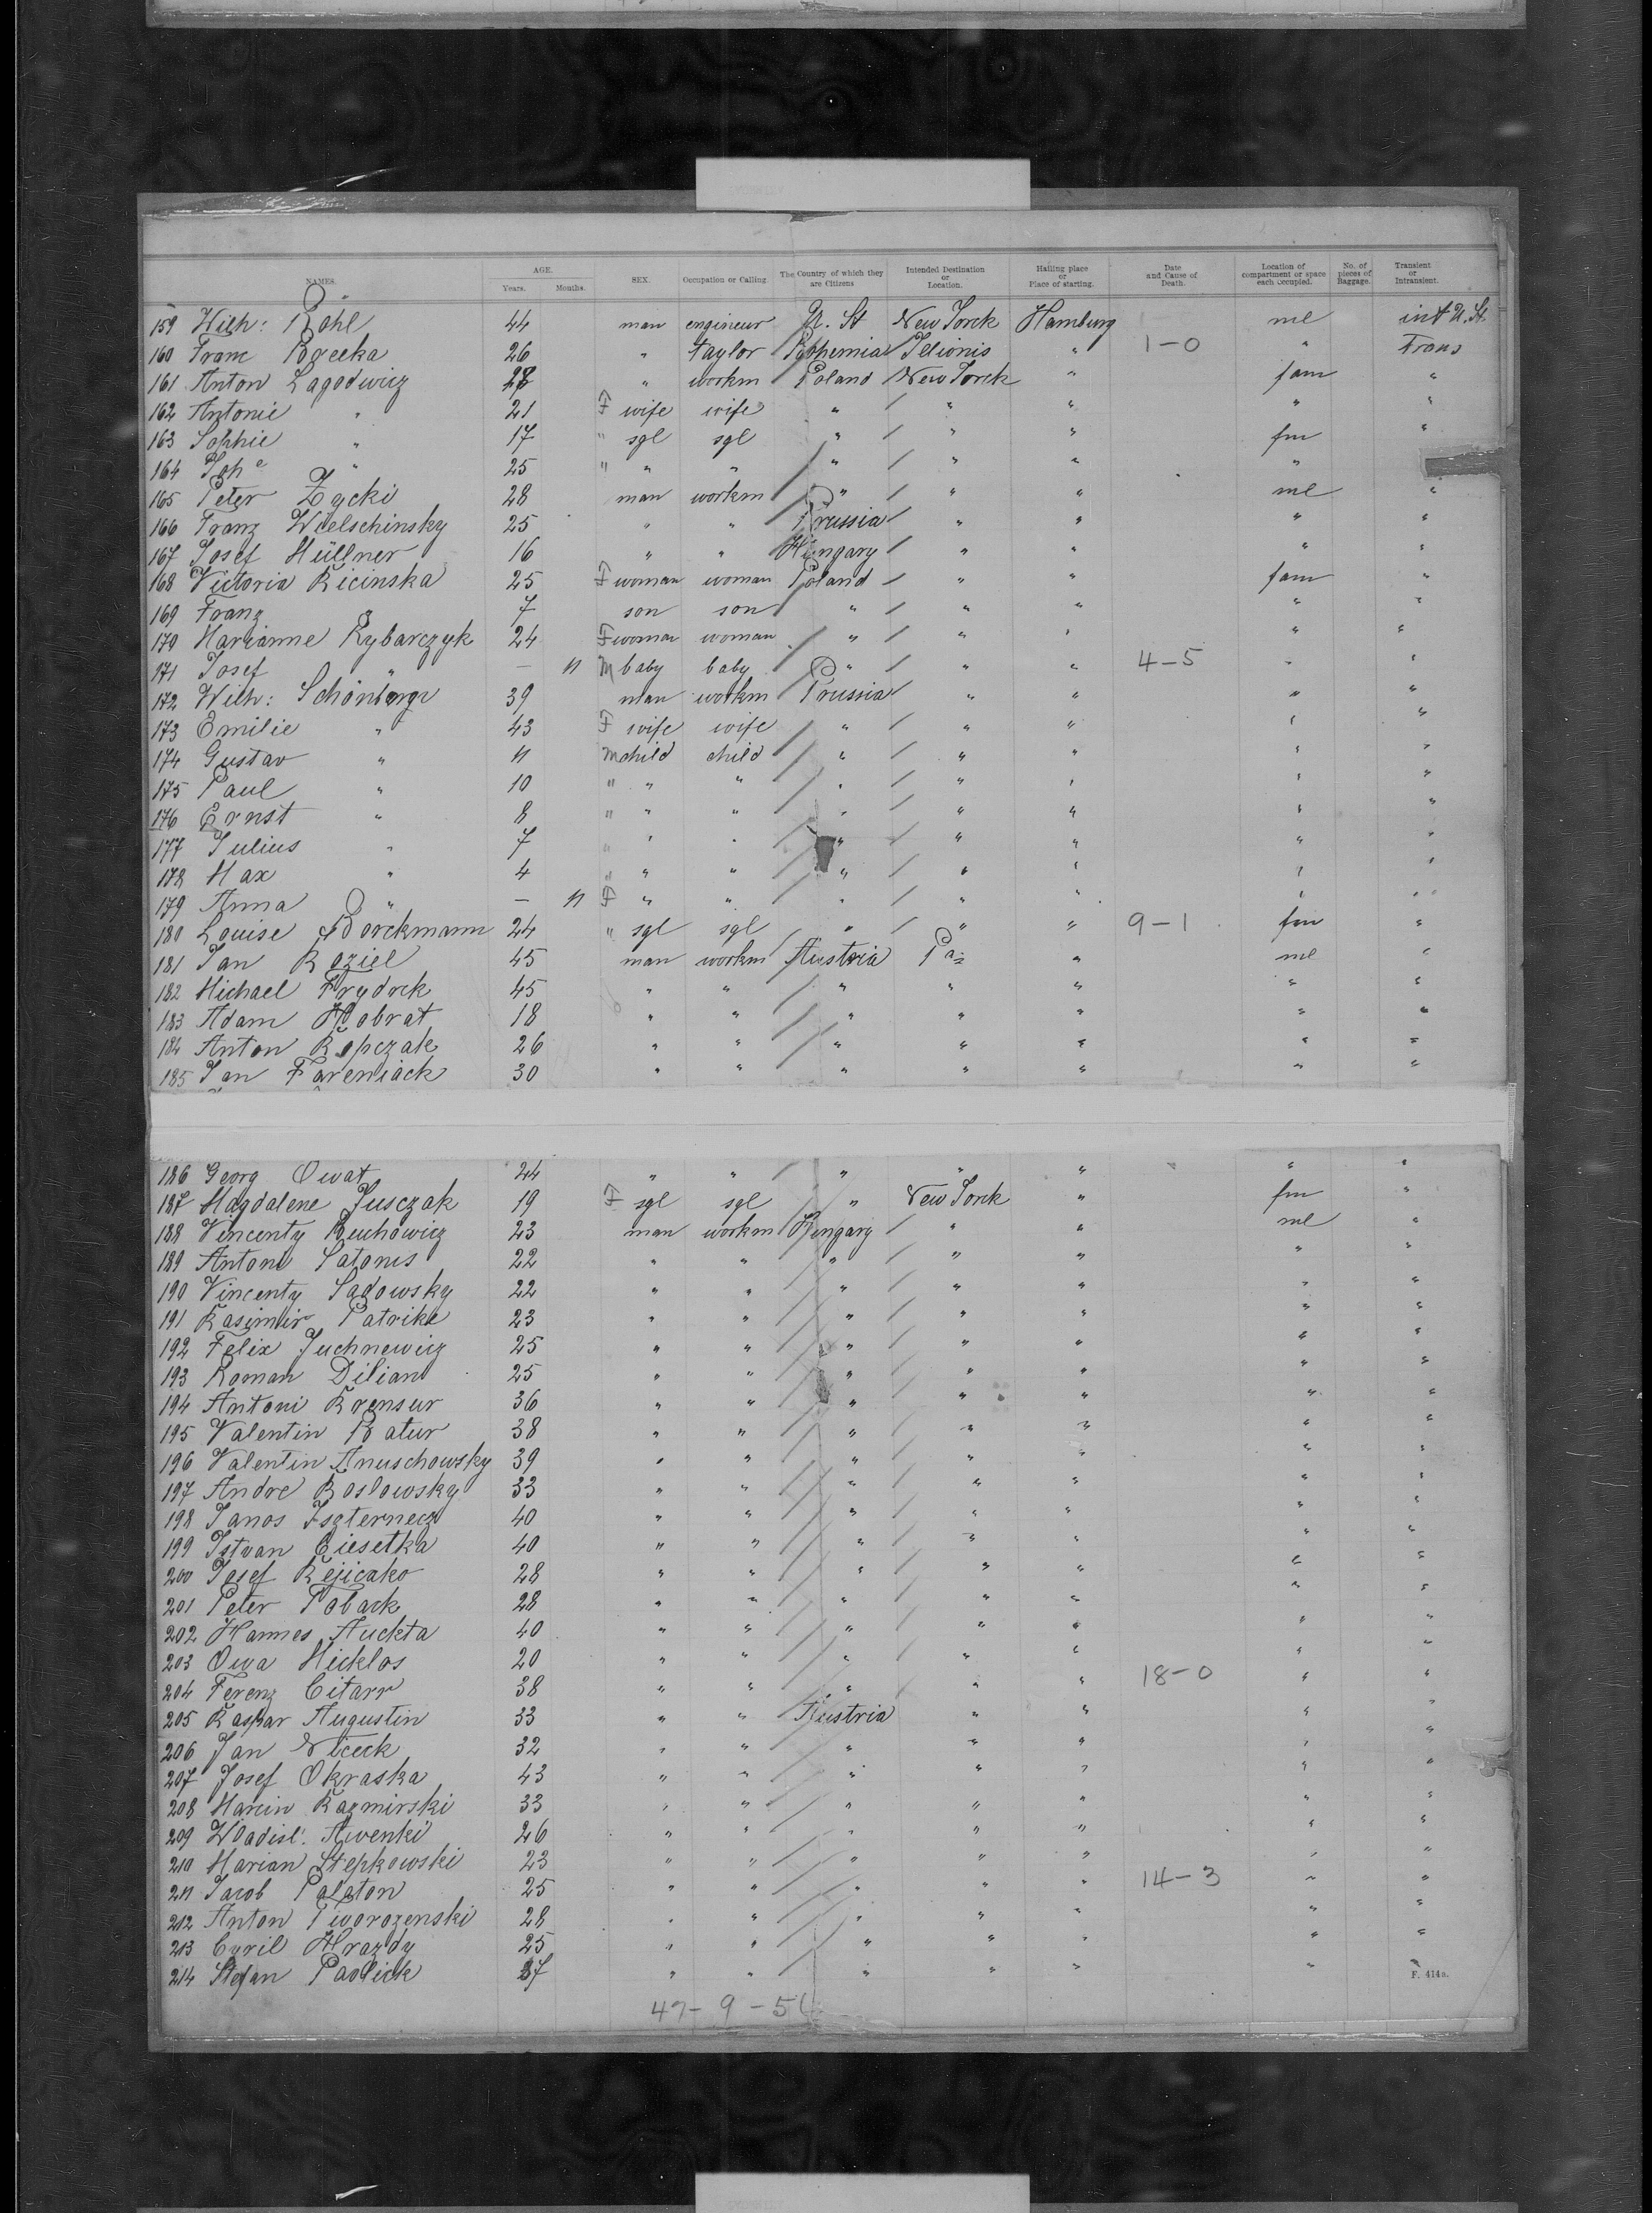 NAMES. AGE. Years. Months. SEX. Occupation or Calling. The Country of which they are Citizens Intended Destination or Location. Hailing place or Place of starting. Date and Cause of Death. Location of compartment or space each Occupied. No. of pieces of Baggage. Transient or Intransient.
159 Wilh: Röhl 44 man engineur U. St New Yorck Hamburg ml int U. St.
160 Franc 26 " taylor Bohemia Illionis " 1-0 " Trans
161 Anton Lagodwicz 28 " workm Poland New Yorck " fam "
162 Antonie " 21 F wife wife " " " " "
163 Sophie " 17 " sgl sgl " " " fm "
164 Johe " 25 " " " " " " "
165 Peter Zycki 28 man workm " " " ml "
166 Franz Woelschinsky 25 " " Prussia " " " "
167 Josef Hüllner 16 " " Hungary " " " "
168 Victoria Kicinska 25 F woman woman Poland " " fam "
169 Franz 7 son son " " " " "
170 Marianne Rybarczyk 24 F woman woman " " " " "
171 Josef " — 11 M baby baby " " " 4-5 " "
172 Wilh: Schönberger 39 man workm Prussia " " " "
173 Emilie " 43 F wife wife " " " " "
174 Gustav " 11 M child child " " " " "
175 Paul " 10 " " " " " " " "
176 Ernst " 8 " " " " " " " "
177 Julius " 7 " " " " " " " "
178 Max " 4 " " " " " " " "
179 Anna " — 11 F " " " " " " "
180 Louise Borckmann 24 " sgl sgl " " " 9-1 fm "
181 Jan Koziel 45 man workm Austria Pa: " ml "
182 Michael Frydrck 45 " " " " " " "
183 Adam Hobrat 18 " " " " " " "
184 Anton Kopczak 26 " " " " " " "
185 Jan Fareniack 30 " " " " " " "
186 Georg Owat 24 " " " " " " "
187 Magdalene Jusczak 19 F sgl sgl " New Yorck " fm "
188 Vincenty Ruchowicz 23 man workm Hungary " " ml "
189 Antoni Satonis 22 " " " " " " "
190 Vincenty Sadowsky 22 " " " " " " "
191 Kasimir Patrike 23 " " " " " " "
192 Felix Juchnewicz 25 " " " " " " "
193 Roman Dilian 25 " " " " " " "
194 Antoni Krensur 36 " " " " " " "
195 Valentin Batur 38 " " " " " " "
196 Valentin Anuschowsky 39 " " " " " " "
197 Andre Koslowsky 33 " " " " " " "
198 Janos Iszternecz 40 " " " " " " "
199 Istvan Ciesetka 40 " " " " " " "
200 Josef Kejicako 28 " " " " " " "
201 Peter Toback 28 " " " " " " "
202 Hannes Huckta 40 " " " " " " "
203 Owa Micklos 20 " " " " " " "
204 Ferenz Citarr 38 " " " " " 18-0 " "
205 Kaspar Augustin 33 " " Austria " " " "
206 Jan Niceck 32 " " " " " " "
207 Josef Okraska 43 " " " " " " "
208 Marcin Kazmirski 33 " " " " " " "
209 Wladisl: Awenki 26 " " " " " " "
210 Marian Stepkowski 23 " " " " " " "
211 Jacob Palaton 25 " " " " " 14-3 " "
212 Anton Tworozenski 28 " " " " " " "
213 Cyril Hrazdy 25 " " " " " " "
214 Stefan Pavlick 37 " " " " " " "
F. 414a.
47-9-54